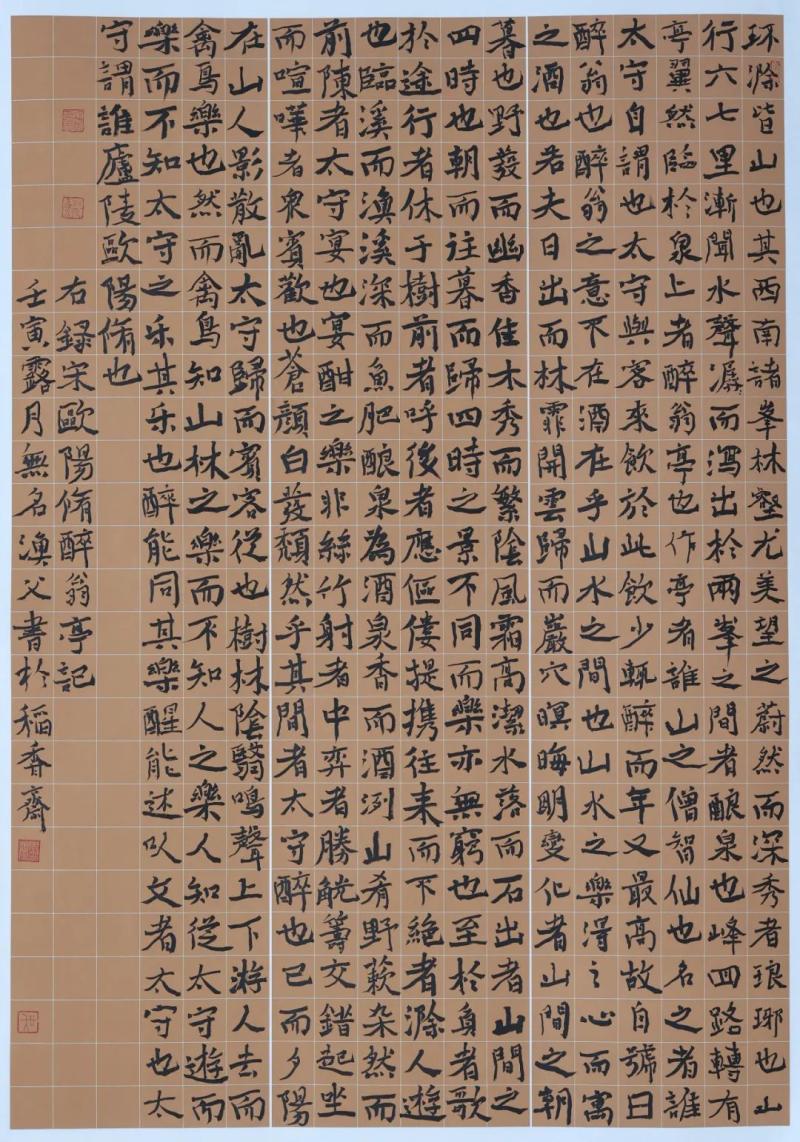 环滁皆山也其西南諸峯林壑尤美望之蔚然而深秀者琅琊也山
行六七里漸聞水聲潺而瀉出於兩峯之間者釀泉也峰回路轉有
亭翼然臨於泉上者醉翁亭也作亭者誰山之僧智仙也名之者誰
太守自謂也太守與客來飲於此飲少輒醉而年又最高故自號曰
醉翁也醉翁之意不在酒在乎山水之間也山水之樂得之心而寓
之酒也若夫日出而林霏開雲歸而巖穴暝晦明變化者山間之朝
暮也野發而幽香佳木秀而繁陰風霜高潔水落而石出者山間之
四時也朝而往暮而歸四時之景不同而樂亦無窮也至於負者歌
於途行者休于樹前者呼後者應傴僂提攜往来而不絕者滁人遊
也臨溪而漁溪深而魚肥釀泉為酒泉香而酒洌山肴野蔌杂然而
前陳者太守宴也宴酣之樂非絲竹射者中弈者勝觥籌交錯起坐
而喧嘩者衆賓歡也蒼顏白發頹然乎其間者太守醉也已而夕陽
在山人影散亂太守歸而賓客從也樹林陰翳鳴聲上下游人去而
禽鳥樂也然而禽鳥知山林之樂而不知人之樂人知從太守遊而
樂而不知太守之乐其乐也醉能同其樂醒能述以文者太守也太
守謂誰廬陵歐陽脩也
右録宋歐陽脩醉翁亭記
壬寅露月無名漁父書於稻香齋